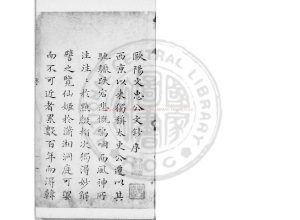 歐陽文忠公文鈔序
西京以來獨稱太史公遷以其
馳驟跌宕悲慨嗚咽而風神所
注往〻於點綴指次獨得妙解
譬之覽仙姬於瀟湘洞庭可望
而不可近者累數百年而得韓